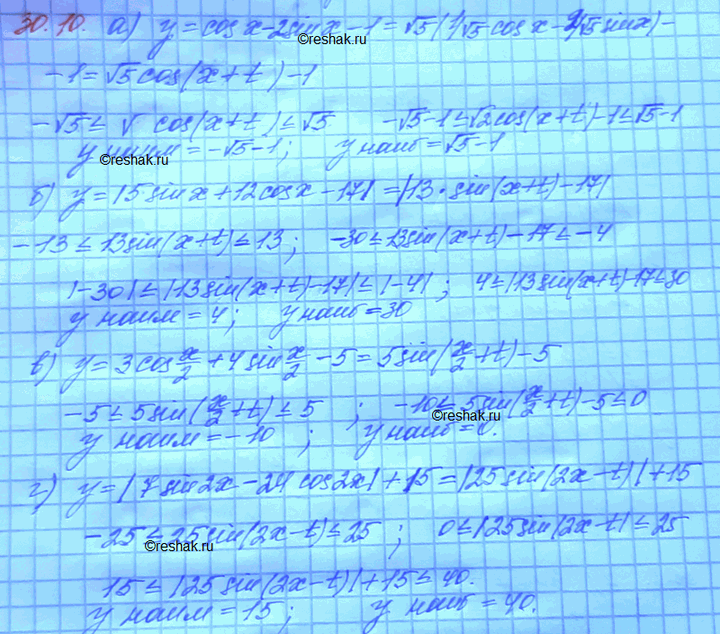 30.10. а) y = cos x - 2 sin x - 1 = √5 (1/√5 cos x - 2/√5 sin x) -
reshak.ru
- 1 = √5 cos(x + t) - 1
-√5 ≤ √ cos(x + t) ≤ √5   -√5 - 1 ≤ √2 cos(x + t) - 1 ≤ √5 - 1
y наим = -√5 - 1;   y наиб = √5 - 1
reshak.ru
б) y = |5 sin x + 12 cos x - 17| = |13 · sin(x + t) - 17|
-13 ≤ 13 sin(x + t) ≤ 13;   -30 ≤ 13 sin(x + t) - 17 ≤ -4
|-30| ≤ |13 sin(x + t) - 17| ≤ |-4|;   4 ≤ |13 sin(x + t) - 17 ≤ 30
y наим = 4;   y наиб = 30
в) y = 3 cos x/2 + 4 sin x/2 - 5 = 5 sin(x/2 + t) - 5
-5 ≤ 5 sin(x/2 + t) ≤ 5;   -10 ≤ 5 sin(x/2 + t) - 5 ≤ 0
reshak.ru
y наим = -10;   y наиб = 0.
г) y = |7 sin 2x - 24 cos 2x| + 15 = |25 sin(2x - t)| + 15
-25 ≤ 25 sin(2x - t) ≤ 25;   0 ≤ |25 sin(2x - t| ≤ 25
reshak.ru
15 ≤ |25 sin(2x - t)| + 15 ≤ 40.
y наим = 15;   y наиб = 40.